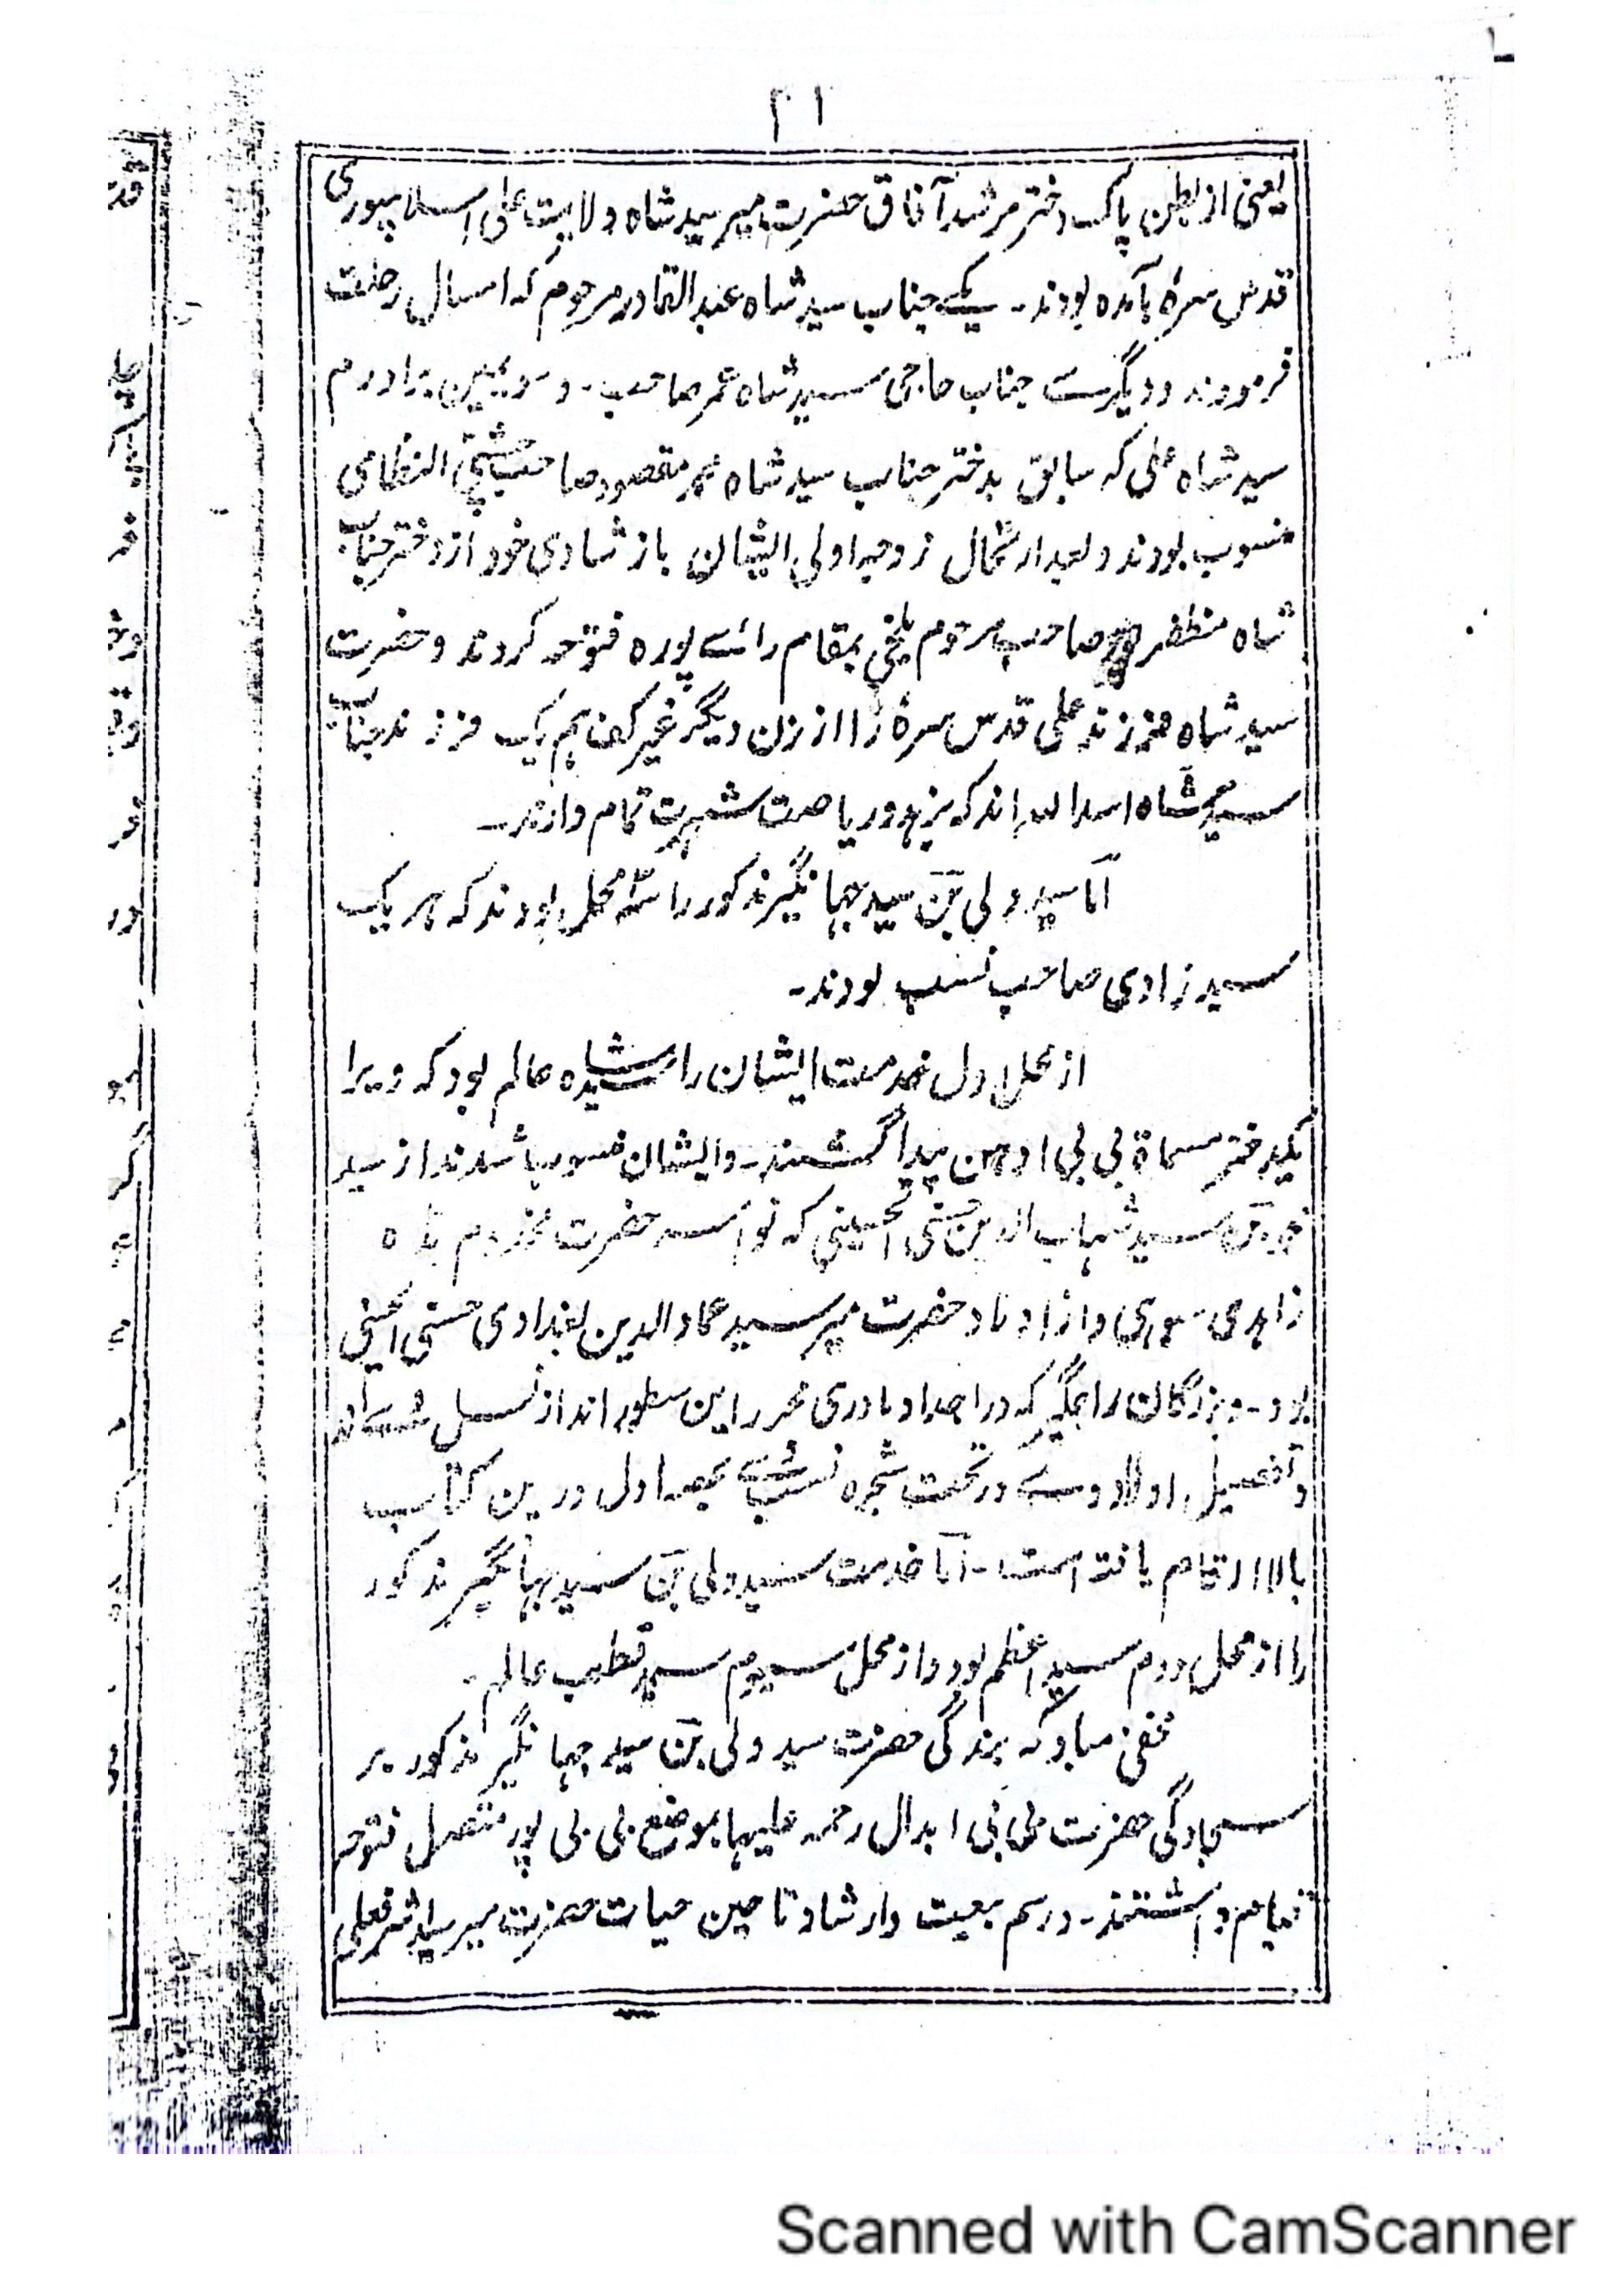 ۲۱
یعنی از بطن پاک دختر مرشد آفاق حضرت میر سید شاه ولایت علی اسلامپوری
قدس سرهٔ آمده بودند۔ یکے جناب سید شاه عبد القادر مرحوم که امسال رحلت
فرمودند و دیگرے جناب حاجی سید شاه عمر صاحب۔ و سویمین برادرم
سید شاه علی که سابق بدختر جناب سید شاه محمد مقصود صاحب چشتی النظامی
منسوب بودند و بعد ارتحال زوجه اولی ایشان باز شادی خود از دختر جناب
شاه مظفر صاحب مرحوم بلخی بمقام رائے پوره فتوحه کردند و حضرت
سید شاه فرزند علی قدس سرهٔ را از زن دیگر غیر کف هم یک فرزند جناب
سید شاه اسد الله اند که بزهد و ریاضت شهرت تمام دارند۔
امّا سید ولی بن سید جهانگیر مذکور را سه محل بودند که هر یک
سید زادی صاحب نسب بودند۔
از محل اول خدمت ایشان را سیده عالم بود که ویرا
یکدختر مسماة بی بی اودهن پیدا گشتند۔ و ایشان منسوب باشدند از سید
بن سید شهاب الدین الحسینی که نواسه حضرت مخدوم شاه
زاهدی و از اولاد حضرت میر سید عماد الدین بغدادی حسنی الحسینی
بود۔ و بزرگان راجگیر که در اجداد مادری محرر این سطور اند از نسل وے اند
و تفصیل اولاد وے در تحت شجره نسب بحصه اول درین کتاب
بالا ارتقام یافته است۔ امّا خدمت سید ولی بن سید جهانگیر مذکور
را از محل دوم سید اعظم بود و از محل سیوم سید قطب عالم۔
مخفی مباد که بندگی حضرت سید ولی بن سید جهانگیر مذکور بر
سجادگی حضرت بی بی ابدال رحمة علیها بموضع بی بی پور متصل فتوحه
قیام داشتند۔ و رسم بیعت و ارشاد تا حین حیات حضرت میر سید
Scanned with CamScanner